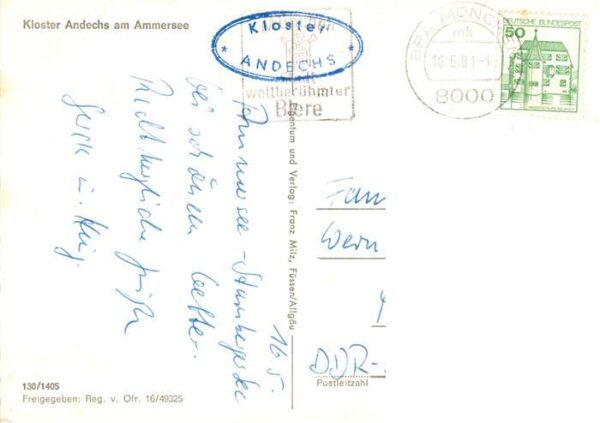 Kloster Andechs am Ammersee
Kloster
* ANDECHS *
weltberühmter
Biere
BPA MÜNCH
mk
16.5.81-1
8000
DEUTSCHE BUNDESPOST
50
16 5.
Ammersee - Starnberger See
bei schönem Wetter.
Recht herzliche Grüße
Eigentum und Verlag: Franz Milz, Füssen/Allgäu
Fam
Wern
DDR-
Postleitzahl
130/1405
Freigegeben: Reg. v. Ofr. 16/49325